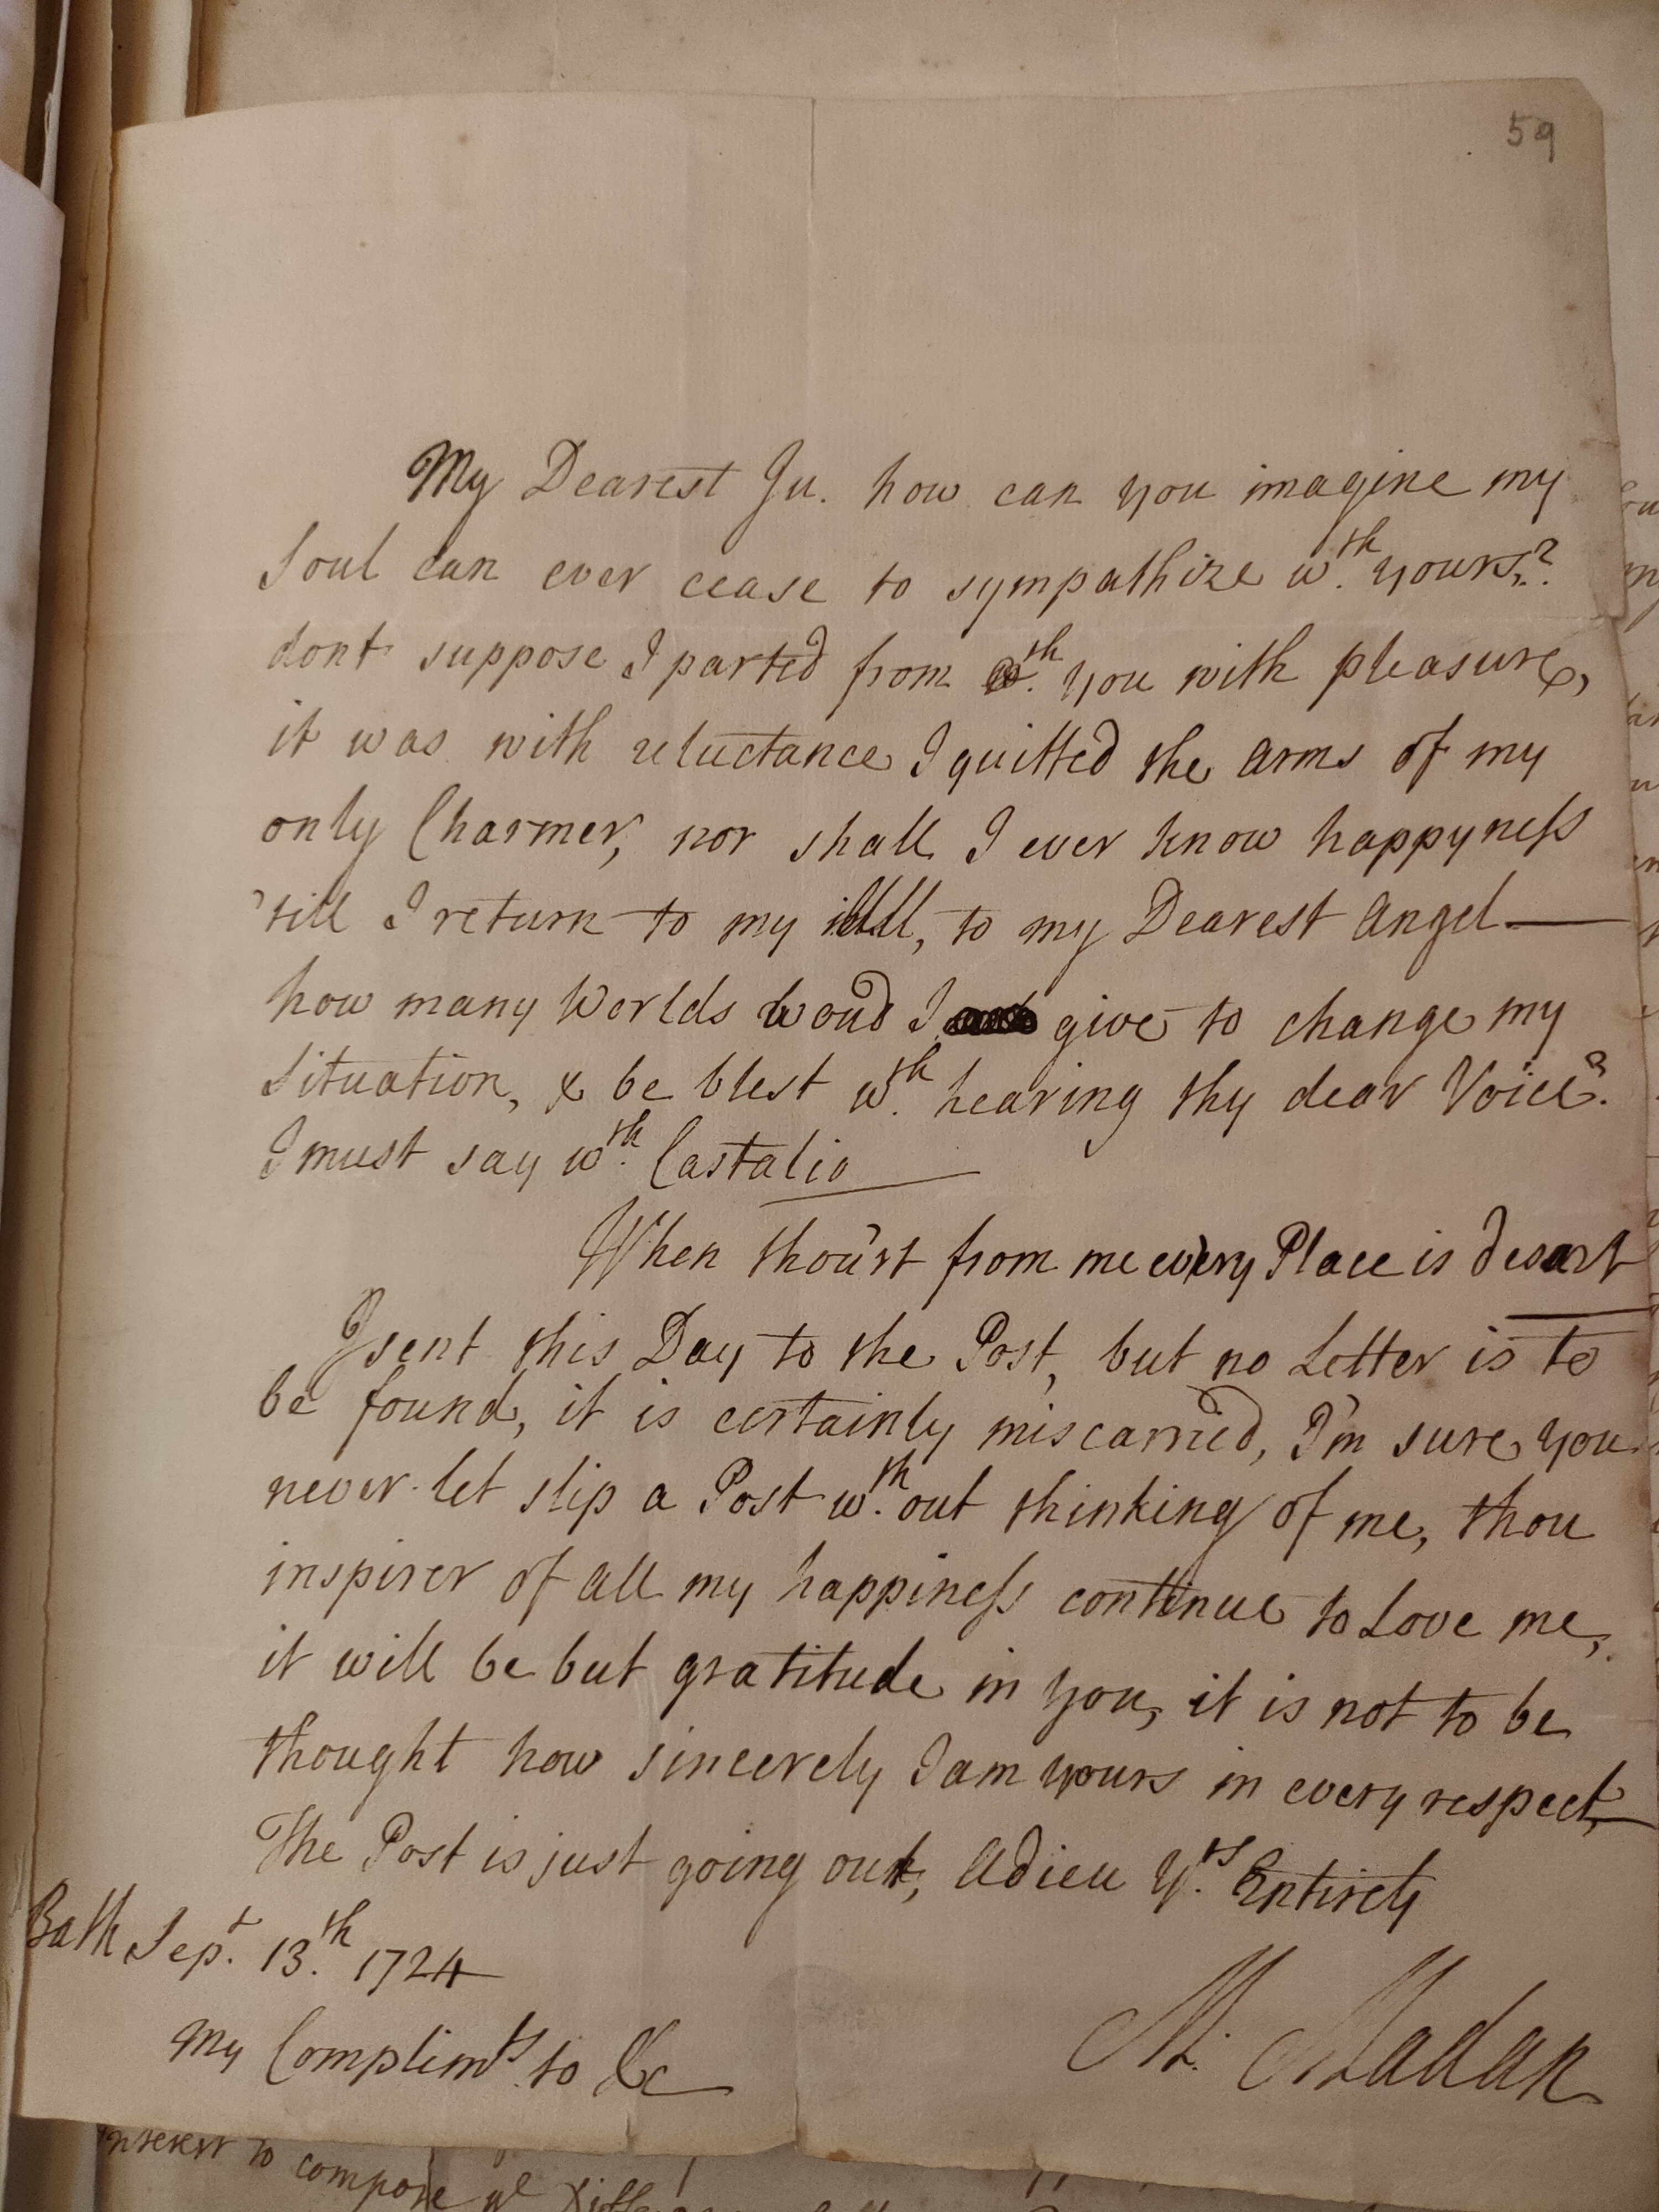 59
My Dearest Ju. how can you imagine my
Soul can ever cease to sympathize wth. yours,?
dont suppose I parted from wth. you with pleasure,
it was with reluctance I quitted the arms of my
only Charmer, nor shall I ever know happyness
'till I return to my to my Dearest Angel —
how many Worlds woud I give to change my
Situation, & be blest wth. hearing thy dear Voice?
I must say wth. Castalio —
When thou'rt from me every Place is desart
I sent this Day to the Post, but no Letter is to
be found, it is certainly miscarried, I'm sure you
never let slip a Post wth.out thinking of me, thou
inspirer of all my happiness continue to Love me,
it will be but gratitude in you, it is not to be
thought how sincerely I am yours in every respect,
The Post is just going out, Adieu Yrs. Entirely
Bath Sept. 13th. 1724
M. Madan
My Complimts. to &c
interest to compose ye